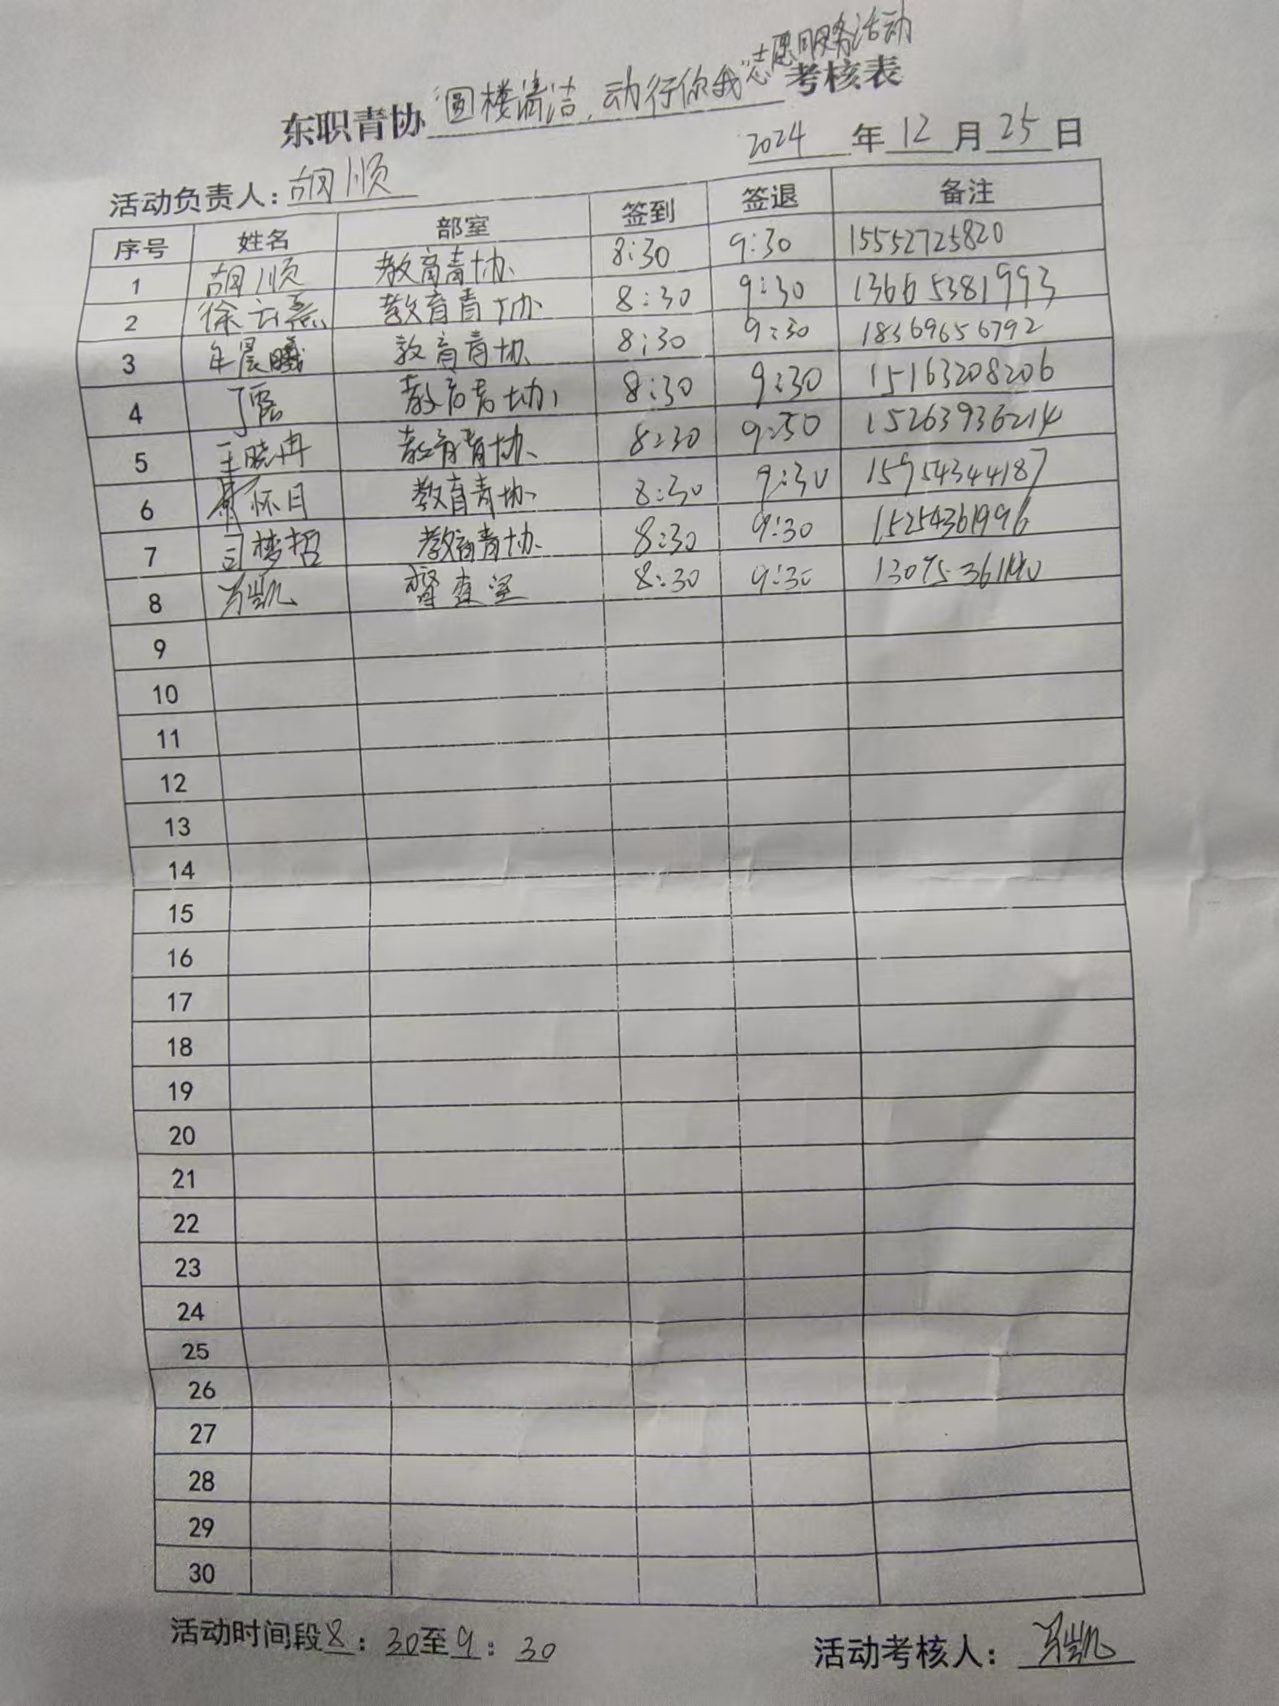 志愿服务活动
东职青协"圆楼清洁,动行你我"考核表
2024年12月25日
活动负责人:胡顺
序号 姓名 部室 签到 签退 备注
1 胡顺 教育青协 8:30 9:30 15552725820
2 徐云熹 教育青协 8:30 9:30 13665381993
3 牟晨曦 教育青协 8:30 9:30 18369656792
4 丁露 教育青协 8:30 9:30 15163208206
5 王晓冉 教育青协 8:30 9:30 15263936214
6 怀月 教育青协 8:30 9:30 15954344187
7 司梦哲 教育青协 8:30 9:30 15254361996
8 凯 督查室 8:30 9:30
9
10
11
12
13
14
15
16
17
18
19
20
21
22
23
24
25
26
27
28
29
30
活动时间段8:30至9:30
活动考核人: 凯